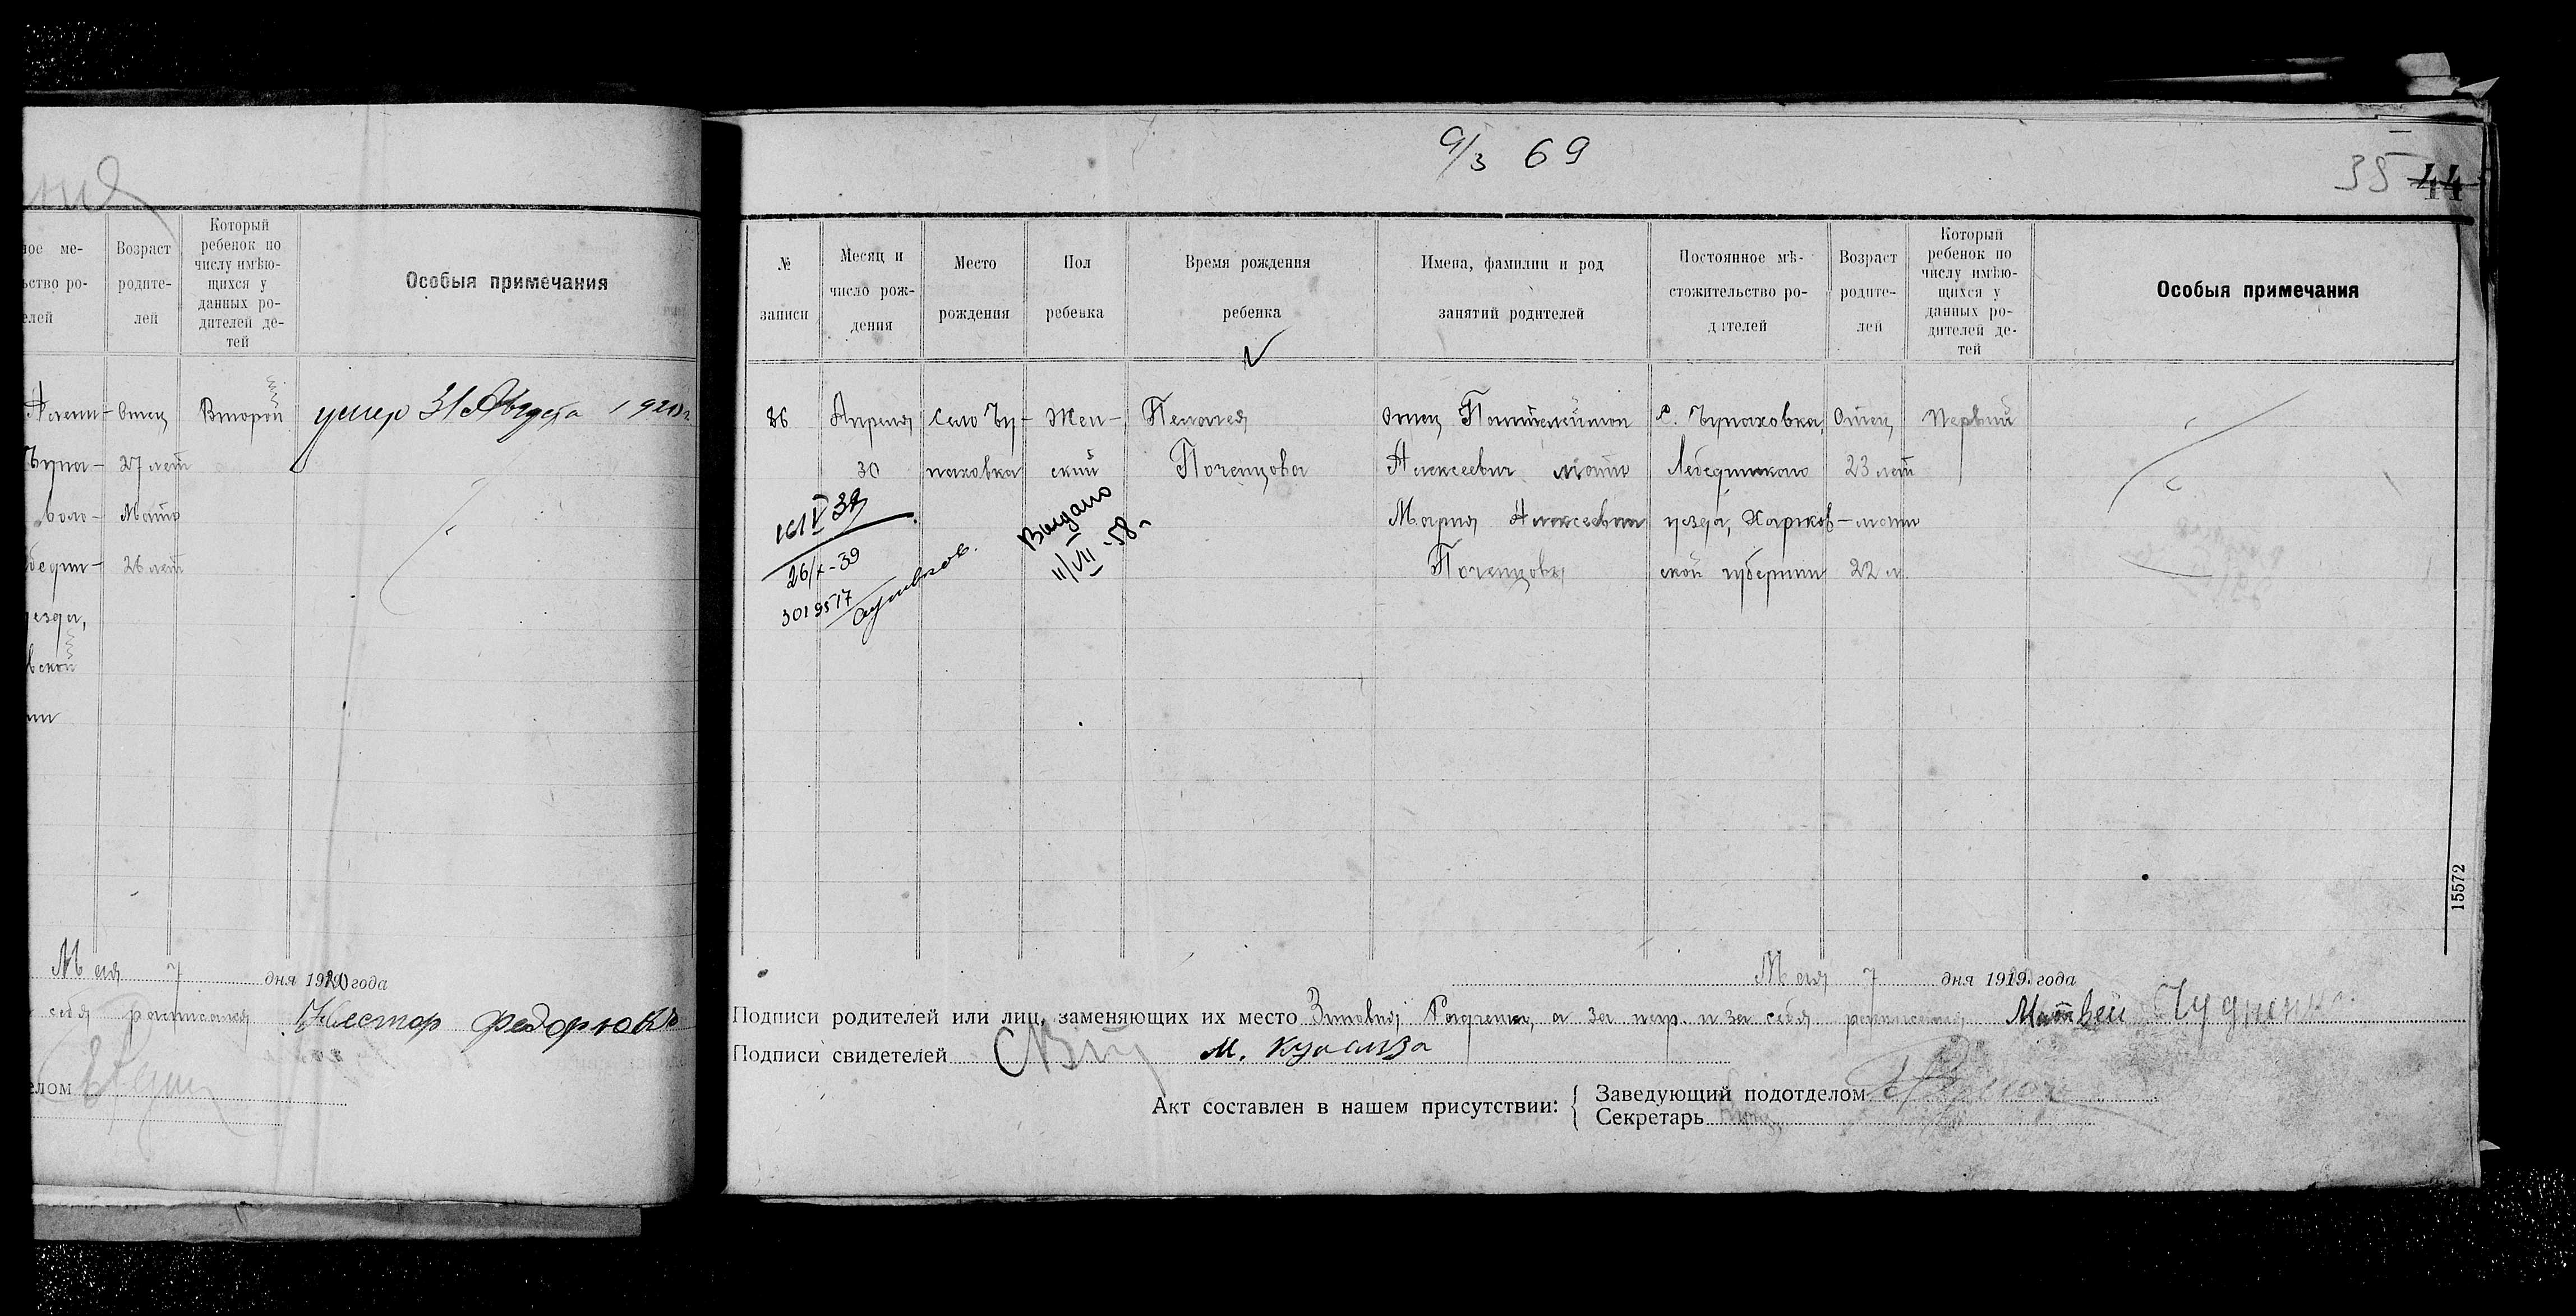 9/3 69
35 44
ное ме-
ство ро-
елей
Возраст
родите-
лей
Который
ребенок по
числу имѣю-
щихся у
данных ро-
дителей де-
тей
Особыя примечания
Отец
27 лет
Мать
26 лет
Второй
умер 31 Августа 1920 г.
Чупа-
воло-
бедин-
уезда,
вской
Мая 7 дня 1920 года
себя расписался Нестор Федорюкъ
елом
№
записи
Месяц и
число рож-
дения
Место
рождения
Пол
ребенка
Время рождения
ребенка
Имена, фамилии и род
занятий родителей
Постоянное мѣ-
стожительство ро-
дителей
Возраст
родите-
лей
Который
ребенок по
числу имѣю-
щихся у
данных ро-
дителей де-
тей
Особыя примечания
86
Апреля
30
Село Чу-
паховка
Жен-
ский
Пелагея
Почепцова
Отец Пантелеймон
Алексеевич мать
Мария Алексеевна
Почепцовы
С. Чупаховка,
Лебединского
уезда, Харков-
ской губернии
Отец
23 лет
мать
22 л.
Первый
16/V 39
26/X-39
3019517
Выдано
11/VII-58 г.
15572
Мая 7 дня 1919 года
Подписи родителей или лиц, заменяющих их место Зиновия Радченко, а за негр. и за себя расписался Матвей Чудненко
Подписи свидетелей
Акт составлен в нашем присутствии:
Заведующий подотделом
Секретарь